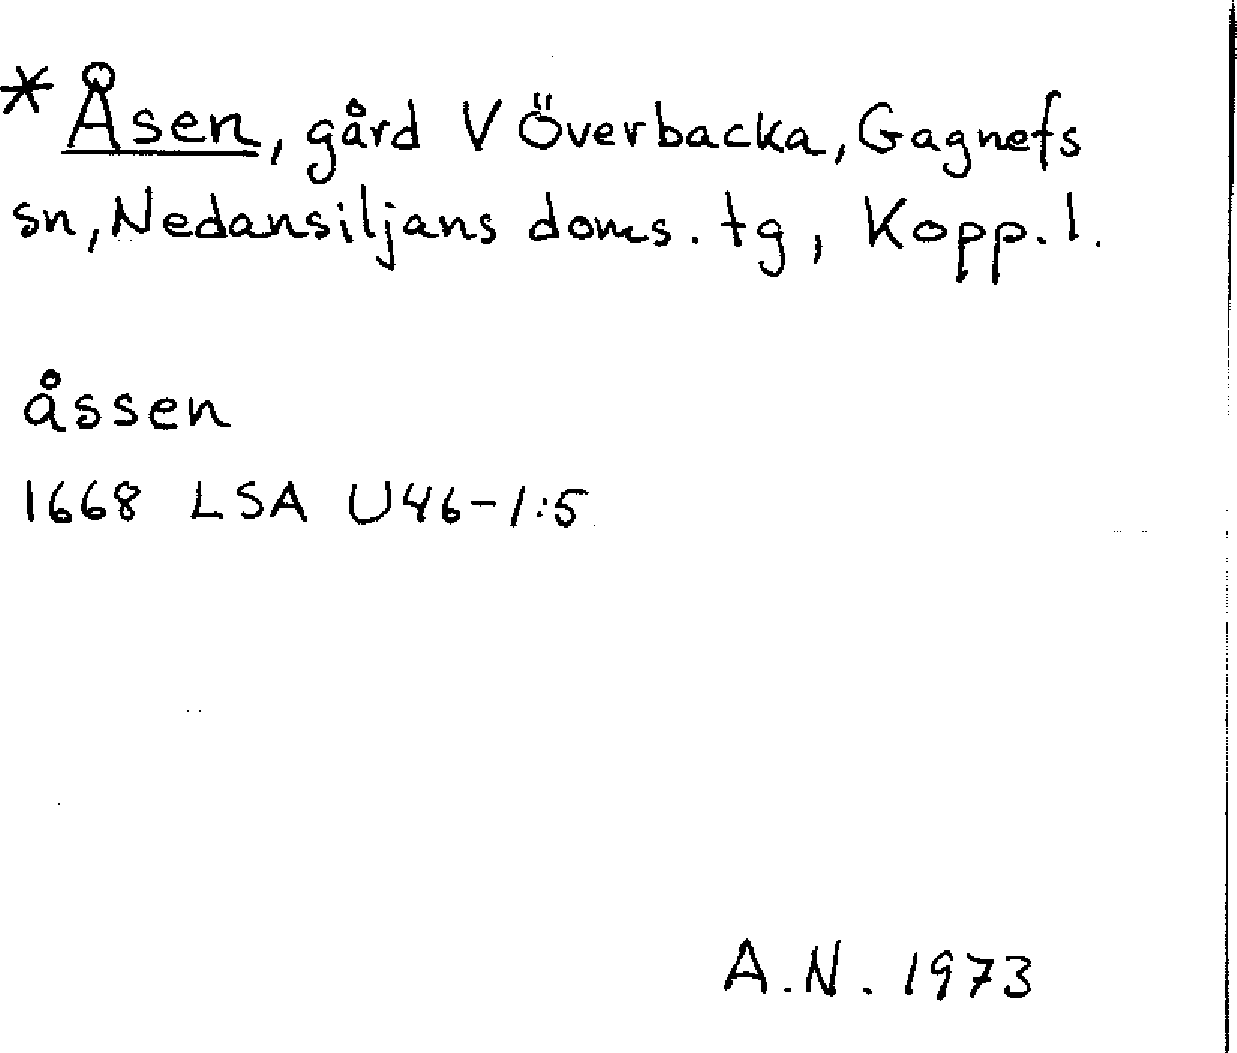 * Åsen, gård V Överbacka, Gagnefs
sn, Nedansiljans doms. tg, Kopp. l.
åssen
1668 LSA U46-1:5
A.N. 1973